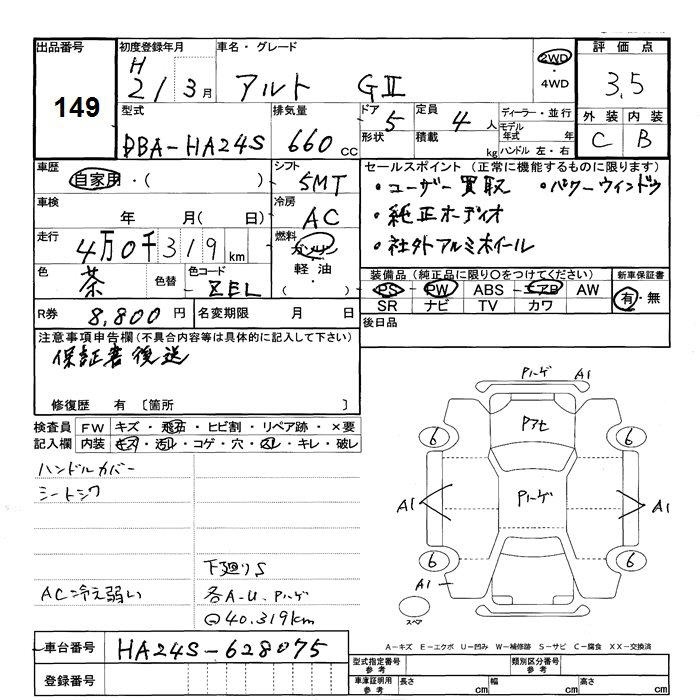 出品番号 初度登録年月 車名・グレード 評価点
149 H21 3月 アルト GⅡ 2WD・4WD 3.5
型式 排気量 ドア 5 定員 4人 ディーラー・並行 外装 内装
DBA-HA24S 660cc 形状 積載 kg モデル年式 年 C B
ハンドル 左・右
車歴 自家用・( ) シフト 5MT セールスポイント (正常に機能するものに限ります)
・ユーザー買取 ・パワーウィンドウ
車検 年 月( 日) 冷房 AC ・純正オーディオ
走行 4万0千319km 燃料 ガソリン・軽油・( ) ・社外アルミホイール
色 茶 色替 色コード ZEL 装備品 (純正品に限り○をつけてください) 新車保証書
PS PW ABS エアB AW 有・無
R券 8,800円 名変期限 月 日 SR ナビ TV カワ
注意事項申告欄(不具合内容等は具体的に記入して下さい) 後日品
保証書後送
修復歴 有 〔箇所 〕
検査員 FW キズ・飛石・ヒビ割・リペア跡・×要
記入欄 内装 キズ・汚レ・コゲ・穴・スレ・キレ・破レ
ハンドルカバー
シートシワ
下廻りS
AC冷え弱い 各A-U、Pハゲ
@40.319km
Pハゲ A1
Pアセ
6 6
A1 Pハゲ A1
6 6
A1
スペア
A-キズ E-エクボ U-凹み W-補修跡 S-サビ C-腐食 XX-交換済
車台番号 HA24S-628075
登録番号
型式指定番号 参考 類別区分番号 参考
車庫証明用 参考 長さ cm 幅 cm 高さ cm